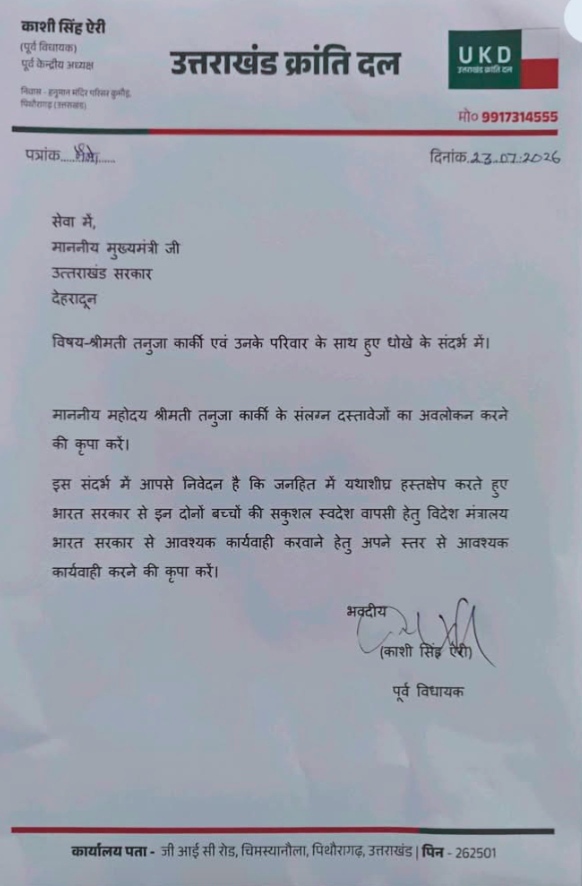 काशी सिंह ऐरी
(पूर्व विधायक)
पूर्व केन्द्रीय अध्यक्ष
निवास - हनुमान मंदिर परिसर कुमौड़,
पिथौरागढ़ (उत्तराखंड)
उत्तराखंड क्रांति दल
UKD
उत्तराखंड क्रांति दल
मो० 9917314555
पत्रांक
दिनांक 23.07.2026
सेवा में,
माननीय मुख्यमंत्री जी
उत्तराखंड सरकार
देहरादून
विषय-श्रीमती तनुजा कार्की एवं उनके परिवार के साथ हुए धोखे के संदर्भ में।
माननीय महोदय श्रीमती तनुजा कार्की के संलग्न दस्तावेजों का अवलोकन करने
की कृपा करें।
इस संदर्भ में आपसे निवेदन है कि जनहित में यथाशीघ्र हस्तक्षेप करते हुए
भारत सरकार से इन दोनों बच्चों की सकुशल स्वदेश वापसी हेतु विदेश मंत्रालय
भारत सरकार से आवश्यक कार्यवाही करवाने हेतु अपने स्तर से आवश्यक
कार्यवाही करने की कृपा करें।
भवदीय
(काशी सिंह ऐरी)
पूर्व विधायक
कार्यालय पता - जी आई सी रोड, चिमस्यानौला, पिथौरागढ़, उत्तराखंड | पिन - 262501